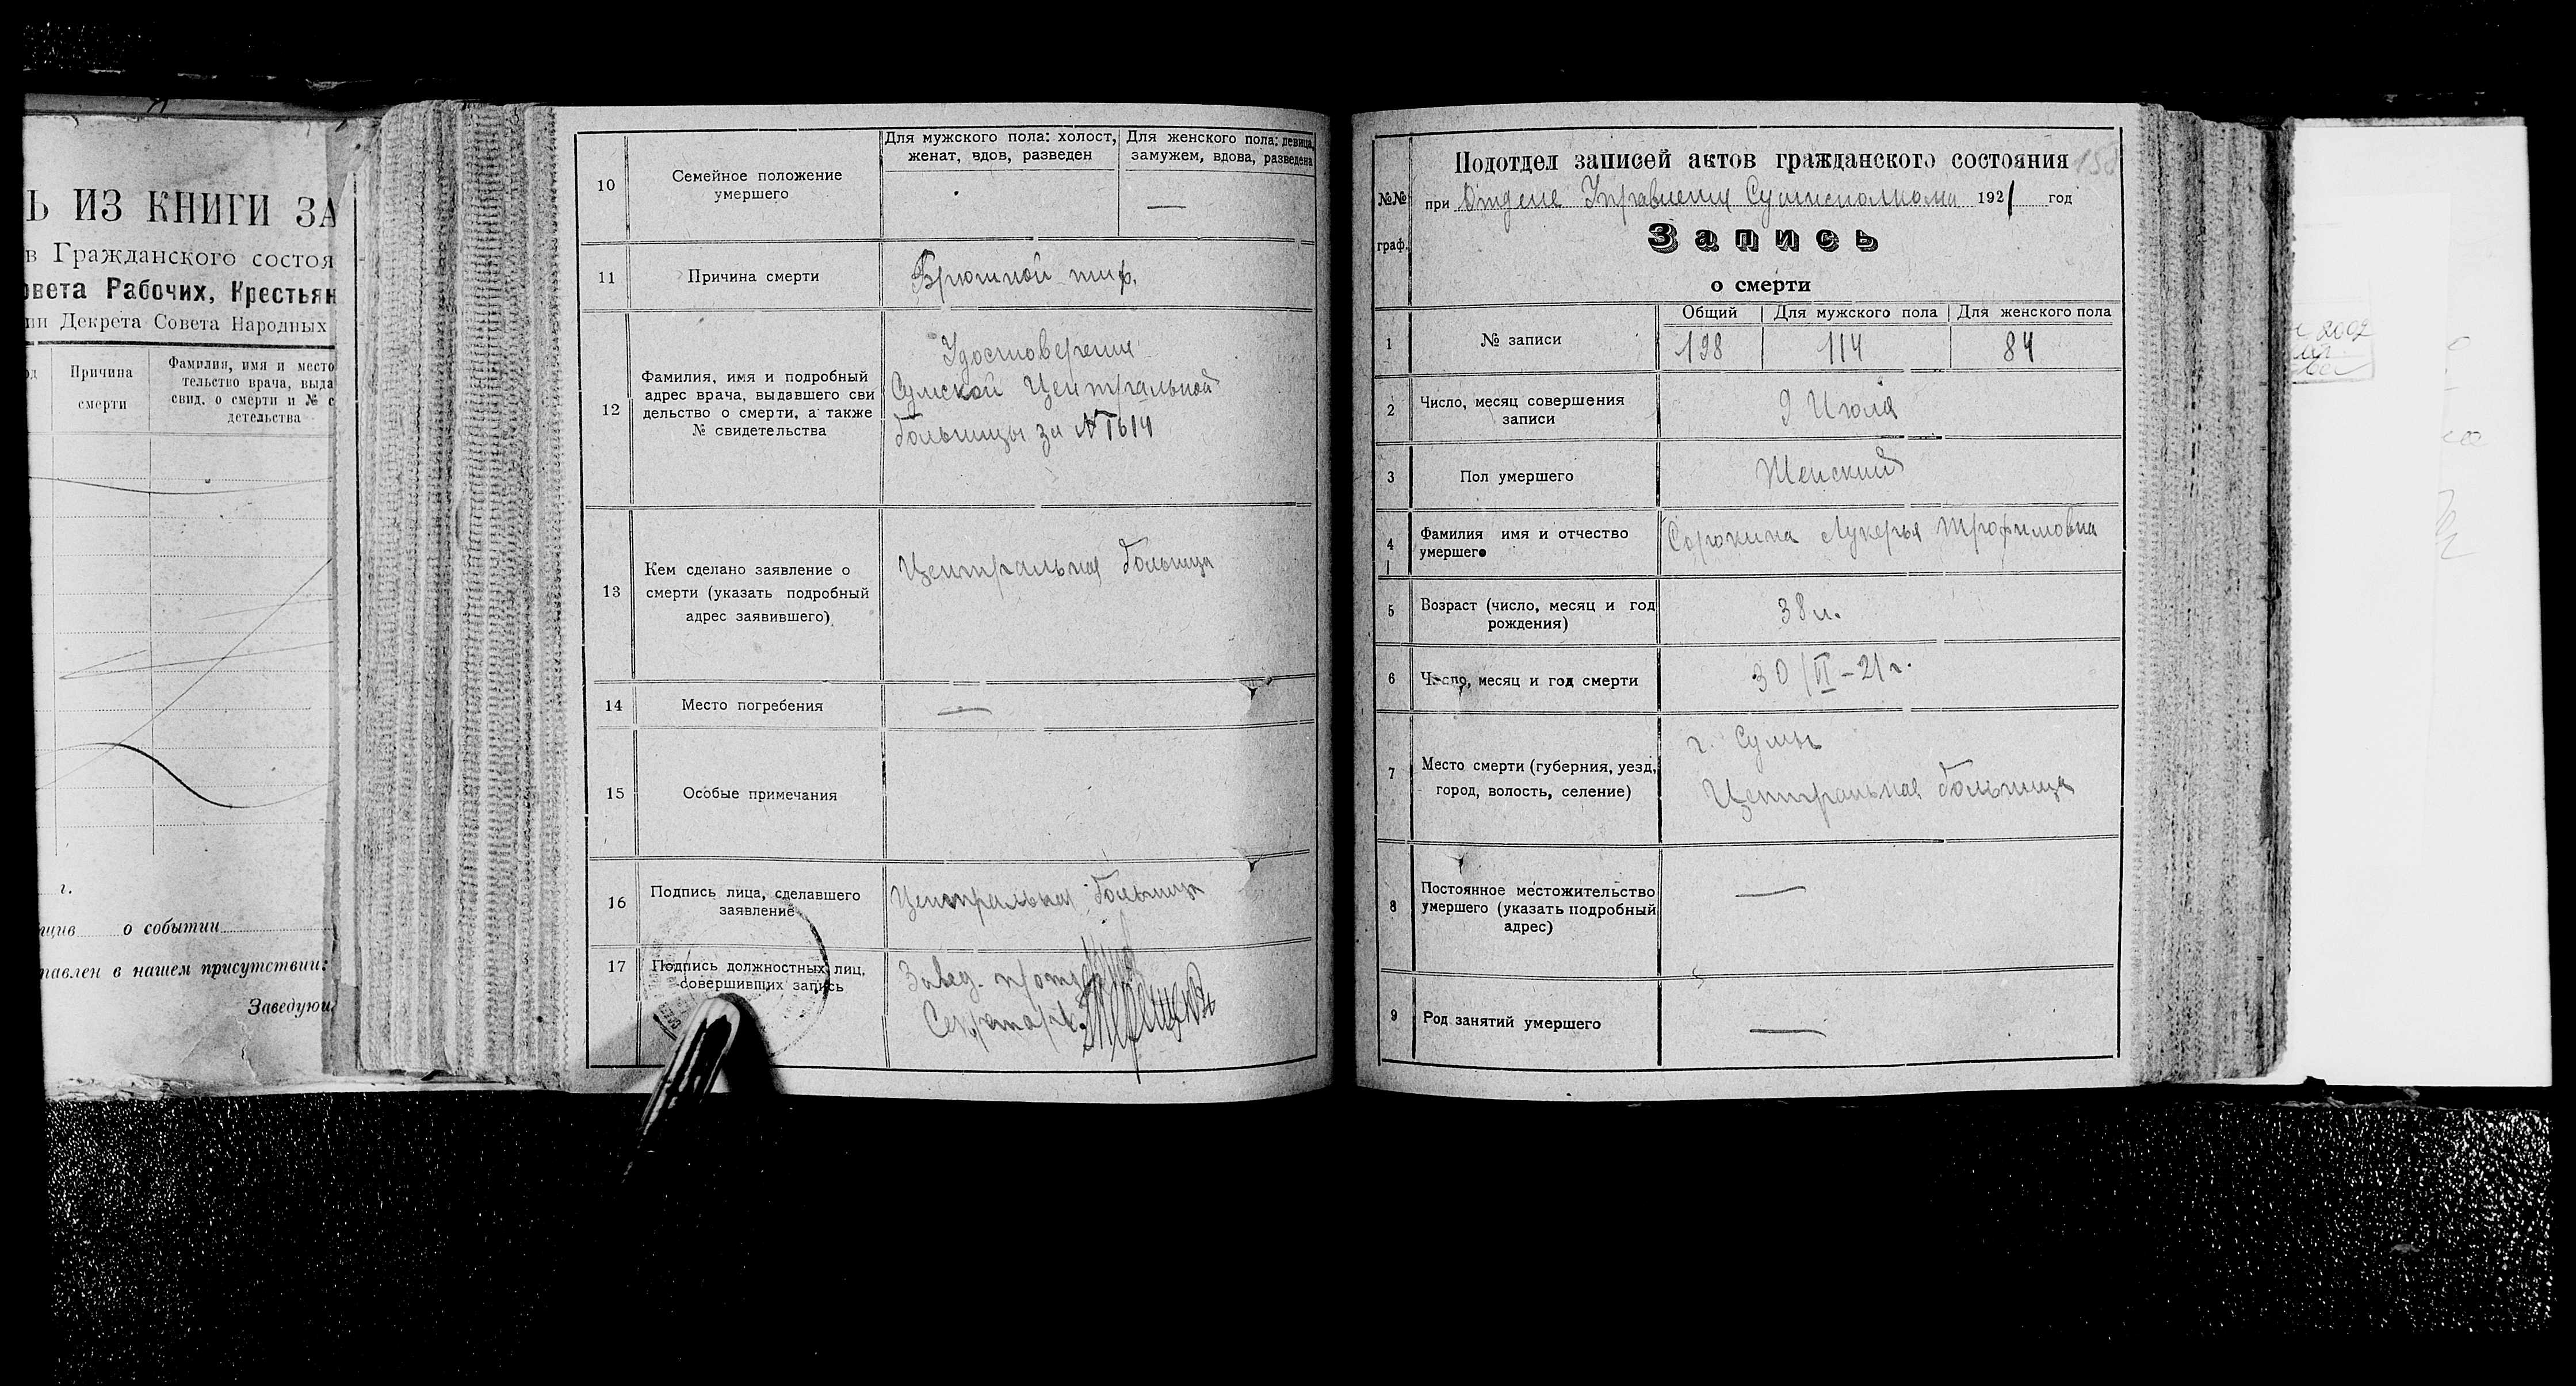 Ь ИЗ КНИГИ ЗА
в Гражданского состоя
овета Рабочих, Крестьян
ии Декрета Совета Народных
Причина
смерти
Фамилия, имя и место
тельство врача, выда
свид. о смерти и № с
детельства
г.
о событии
тавлен в нашем присутствии:
Заведую
10
Семейное положение
умершего
Для мужского пола: холост,
женат, вдов, разведен
Для женского пола: девица,
замужем, вдова, разведена
—
11
Причина смерти
Брюшной тиф.
12
Фамилия, имя и подробный
адрес врача, выдавшего сви
дельство о смерти, а также
№ свидетельства
Удостоверение
Сумской Центральной
больницы за №1614
13
Кем сделано заявление о
смерти (указать подробный
адрес заявившего)
Центральная больница
14
Место погребения
—
15
Особые примечания
16
Подпись лица, сделавшего
заявление
Центральная больница
17
Подпись должностных лиц,
совершивших запись
Завед.
Секретарь
Подотдел записей актов гражданского состояния
158
№№
граф.
при Отделе Управления Сумисполкома 1921 год
Запись
о смерти
1
№ записи
Общий
Для мужского пола
Для женского пола
198
114
84
2
Число, месяц совершения
записи
9 Июля
3
Пол умершего
Женский
4
Фамилия имя и отчество
умершего
Сорокина Лукерья Трофимовна
5
Возраст (число, месяц и год
рождения)
38 л.
6
Число, месяц и год смерти
30/VI–21 г.
7
Место смерти (губерния, уезд,
город, волость, селение)
г. Сумы
Центральная больница
8
Постоянное местожительство
умершего (указать подробный
адрес)
—
9
Род занятий умершего
—
2002